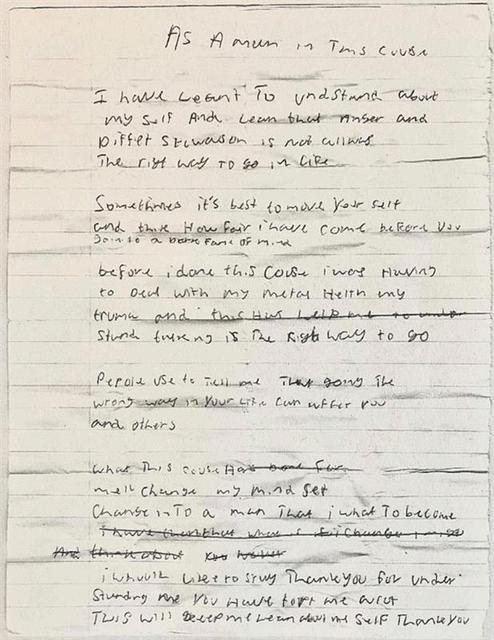 As A mun in This couse
I have leant To undstand about
my self And lean that Anger and
Differ Stuwason is not allwas
The right way To go in Life
Somethimes it's best to move your self
and think How fair i have come before you
Join so a bare fane of mind
before i done this couse i was Having
to Deal with my metal Helth my
truma and this Has help me to under
Stund turning is The Right way to go
Pepole use to Tell me That going The
wrong way in your Life can affer you
and others
what This couse Has done For
me Change my mind set
Change into a man That i what To become
i have that what if i change i
And think about you never
i whould Like to Stay Thankyou for under
Stunding me You Have tort me a lot
This will me lean about me self Thankyou